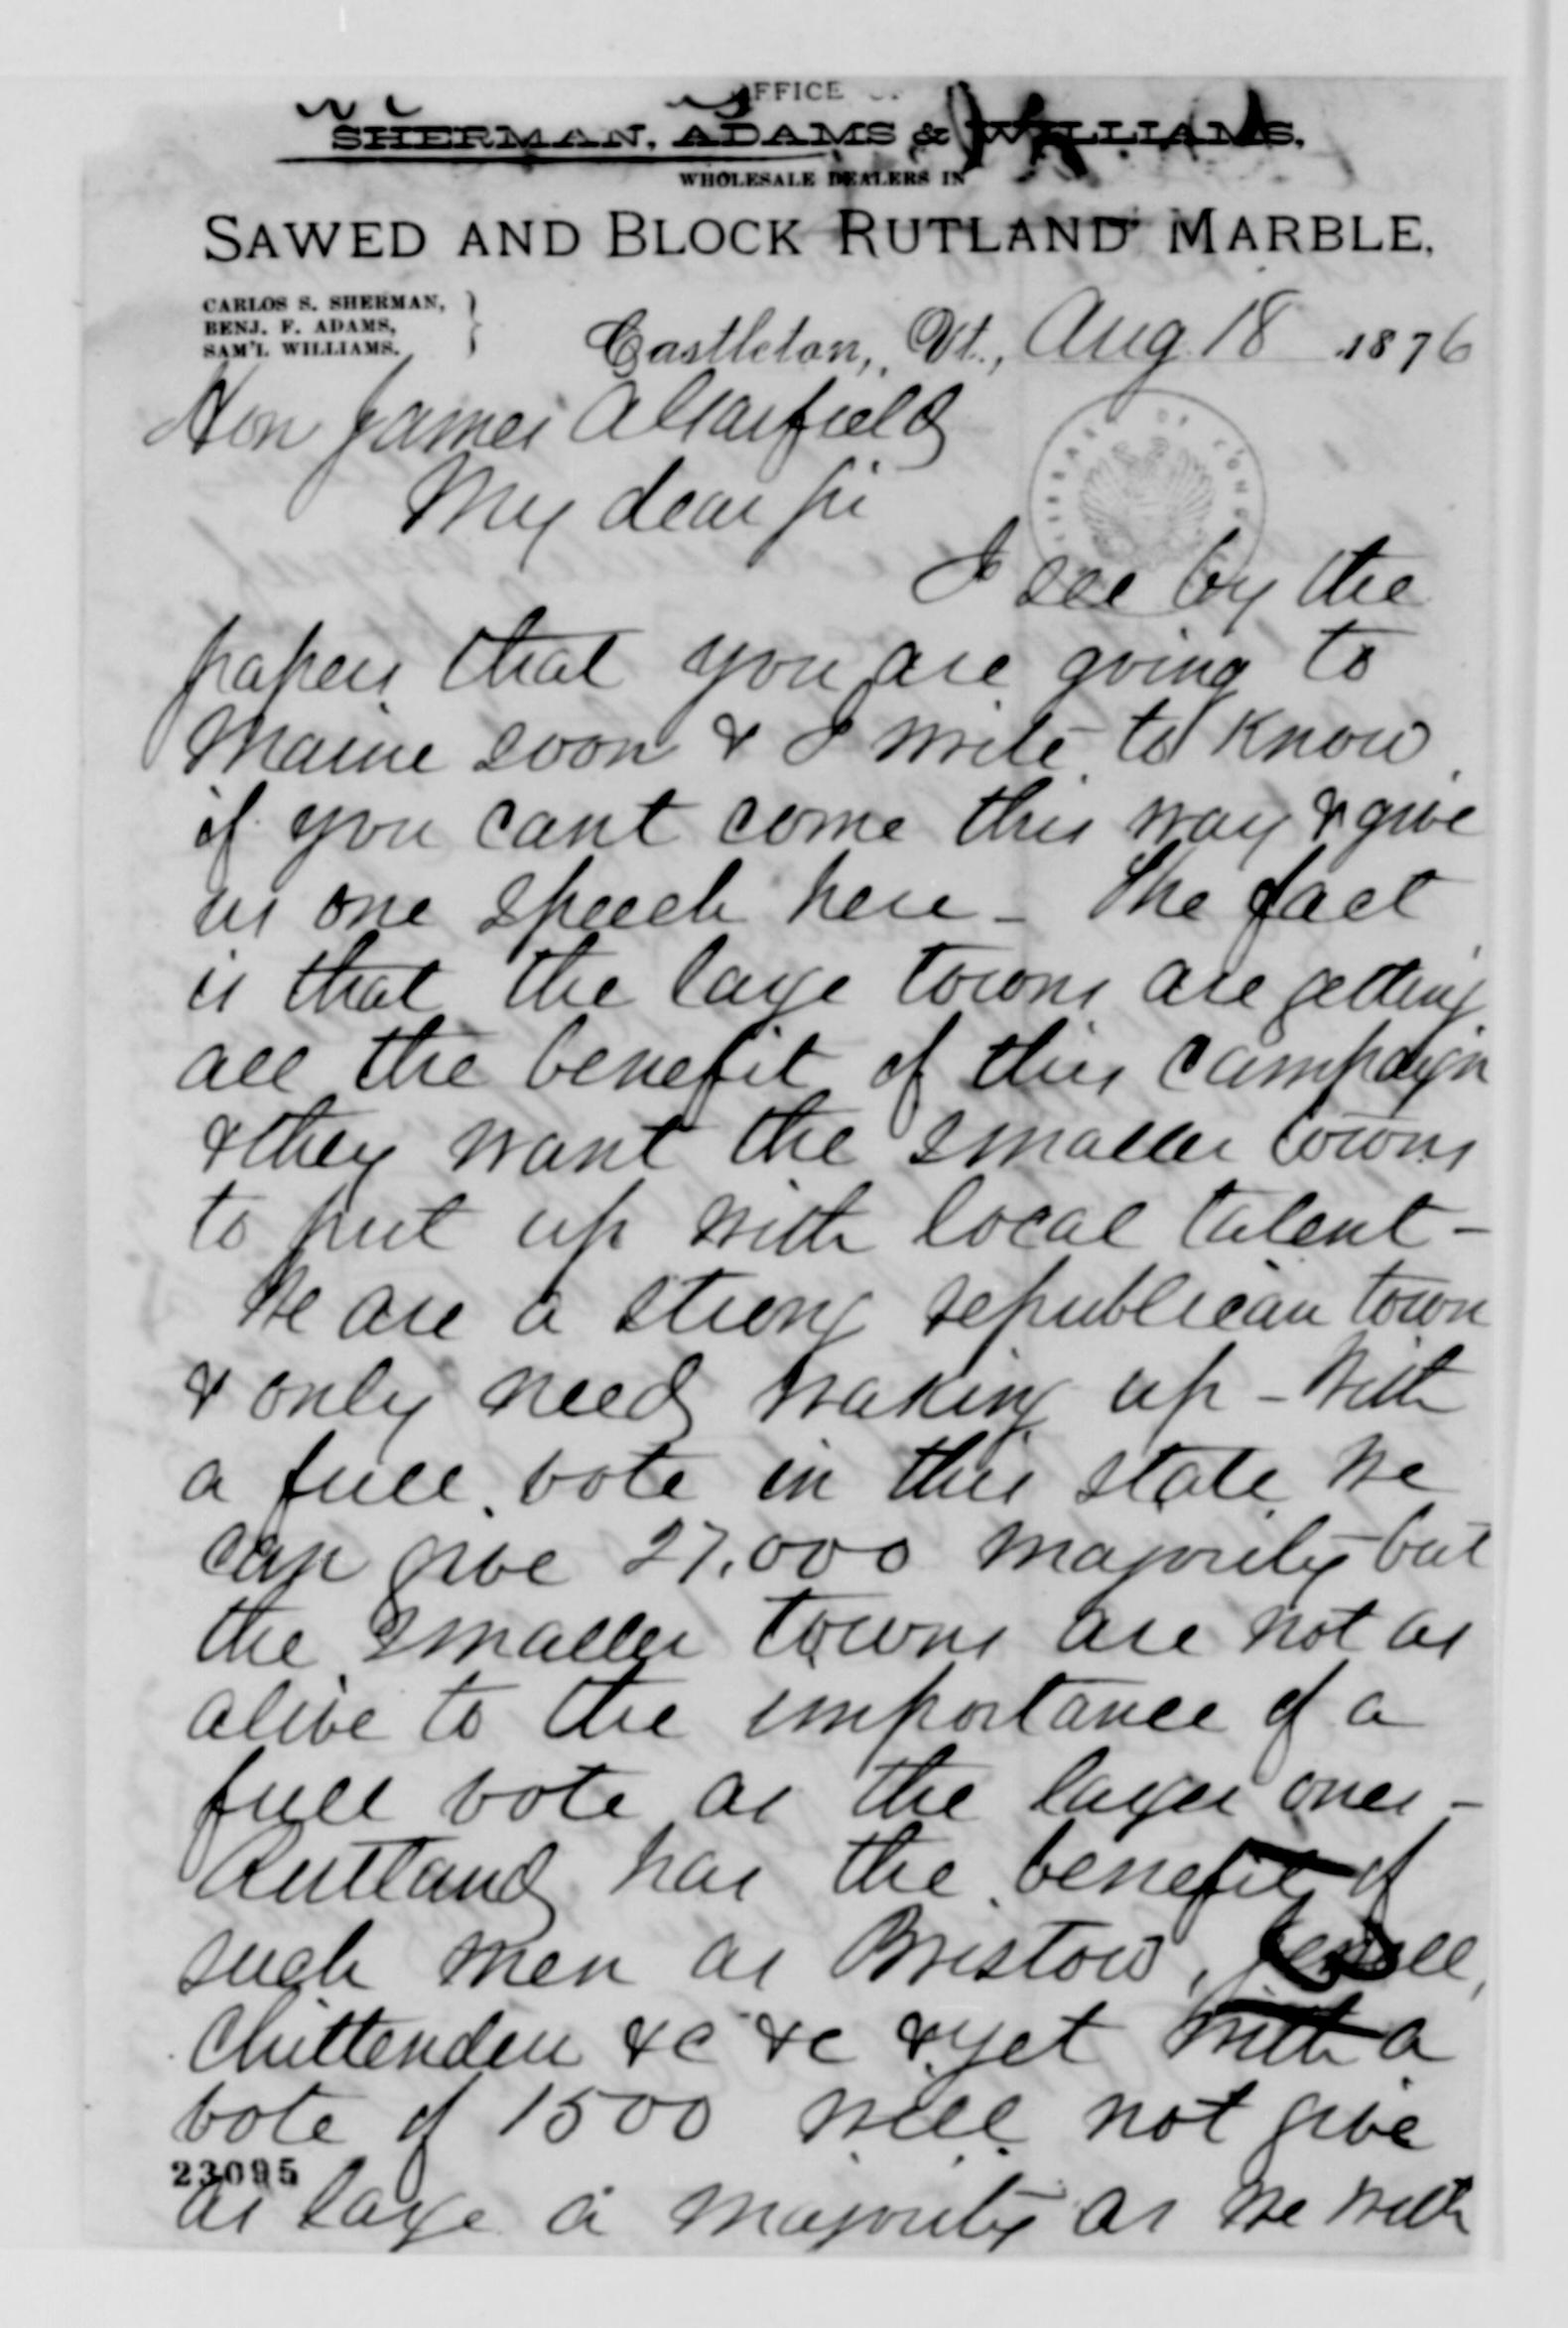 OFFICE OF
SHERMAN, ADAMS & WILLIAMS,
WHOLESALE DEALERS IN
SAWED AND BLOCK RUTLAND MARBLE,
CARLOS S. SHERMAN,
BENJ. F. ADAMS,
SAM'L WILLIAMS.
Castleton, Vt., Aug 18 1876
Hon James A Garfield
My dear Sir
I see by the
papers that you are going to
Maine soon & I write to know
if you cant come this way & give
us one speech here - The fact
is that the large towns are getting
all the benefit of this campaign
& they want the smaller towns
to put up with local talent -
We are a strong republican town
& only need waking up - With
a full vote in this state we
can give 27.000 majority - but
the smaller towns are not as
alive to the importance of a
full vote as the larger ones -
Rutland has the benefit of
such men as Bristow,
Chittenden &c &c & yet with a
vote of 1500 will not give
23095
as large a majority as we with